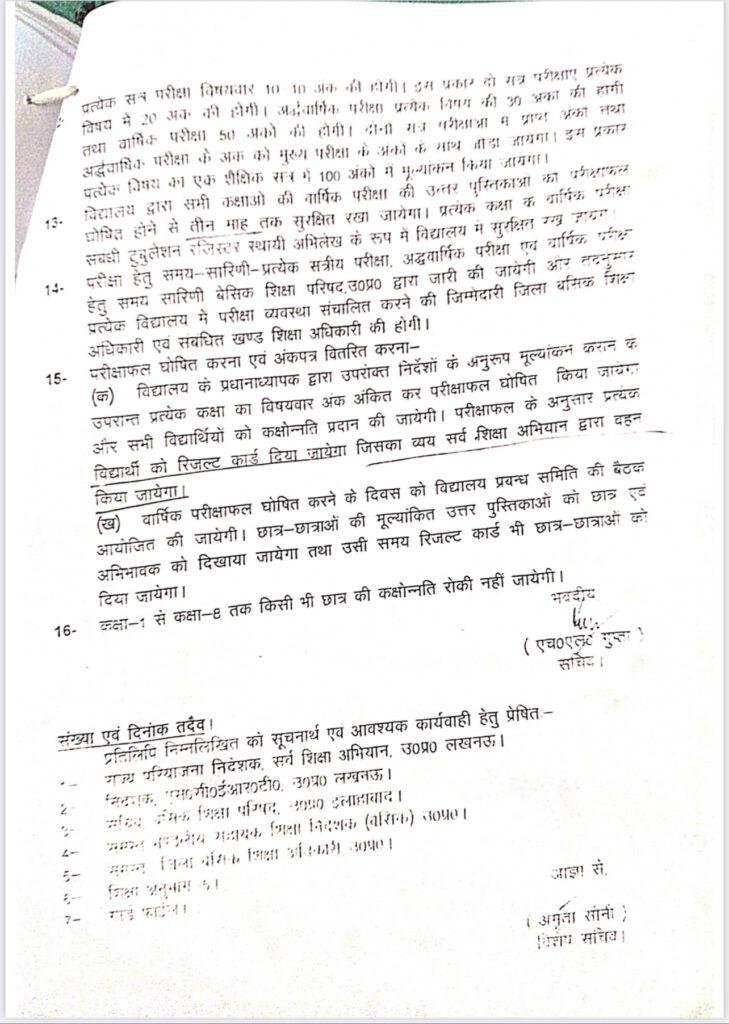 प्रत्येक सत्र परीक्षा विषयवार 10-10 अंक की होगी। इस प्रकार दो सत्र परीक्षाए प्रत्येक
विषय में 20 अंक की होगी। अर्द्धवार्षिक परीक्षा प्रत्येक विषय की 30 अंको की होगी
तथा वार्षिक परीक्षा 50 अंको की होगी। दोनो सत्र परीक्षाओं में प्राप्त अंको तथा
अर्द्धवार्षिक परीक्षा के अंक को मुख्य परीक्षा के अंको के साथ जोडा जायगा। इस प्रकार
प्रत्येक विषय का एक शैक्षिक सत्र में 100 अंको में मूल्यांकन किया जायगा।
13- विद्यालय द्वारा सभी कक्षाओ की वार्षिक परीक्षा की उत्तर पुस्तिकाओं को परीक्षाफल
घोषित होने से तीन माह तक सुरक्षित रखा जायेगा। प्रत्येक कक्षा के वार्षिक परीक्षा
संबंधी टुबुलेशन रजिस्टर स्थायी अभिलेख के रूप में विद्यालय में सुरक्षित रखे जायगे।
14- परीक्षा हेतु समय-सारिणी-प्रत्येक सत्रीय परीक्षा, अर्द्धवार्षिक परीक्षा एवं वार्षिक परीक्षा
हेतु समय सारिणी बेसिक शिक्षा परिषद,उ0प्र0 द्वारा जारी की जायेगी और तदनुसार
प्रत्येक विद्यालय में परीक्षा व्यवस्था संचालित करने की जिम्मेदारी जिला बेसिक शिक्षा
अधिकारी एवं संबधित खण्ड शिक्षा अधिकारी की होगी।
15- परीक्षाफल घोषित करना एवं अंकपत्र वितरित करना-
(क) विद्यालय के प्रधानाध्यापक द्वारा उपरोक्त निर्देशों के अनुरूप मूल्यांकन कराने के
उपरान्त प्रत्येक कक्षा का विषयवार अंक अंकित कर परीक्षाफल घोषित किया जायेगा
और सभी विद्यार्थियों को कक्षोन्नति प्रदान की जायेगी। परीक्षाफल के अनुसार प्रत्येक
विद्यार्थी को रिजल्ट कार्ड दिया जायेगा जिसका व्यय सर्व शिक्षा अभियान द्वारा वहन
किया जायेगा।
(ख) वार्षिक परीक्षाफल घोषित करने के दिवस को विद्यालय प्रबन्ध समिति की बैठक
आयोजित की जायेगी। छात्र-छात्राओं की मूल्यांकित उत्तर पुस्तिकाओं को छात्र एवं
अभिभावक को दिखाया जायेगा तथा उसी समय रिजल्ट कार्ड भी छात्र-छात्राओं को
दिया जायेगा।
16- कक्षा-1 से कक्षा-8 तक किसी भी छात्र की कक्षोन्नति रोकी नहीं जायेगी।
भवदीय
(एच0एल0 गुप्ता)
सचिव।
संख्या एवं दिनांक तदैव।
प्रतिलिपि निम्नलिखित को सूचनार्थ एवं आवश्यक कार्यवाही हेतु प्रेषितः-
1- राज्य परियोजना निदेशक, सर्व शिक्षा अभियान, उ0प्र0 लखनऊ।
2- निदेशक, एस0सी0ई0आर0टी0, उ0प्र0 लखनऊ।
3- सचिव, बेसिक शिक्षा परिषद, उ0प्र0 इलाहाबाद।
4- समस्त मण्डलीय सहायक शिक्षा निदेशक (बेसिक) उ0प्र0।
5- समस्त जिला बेसिक शिक्षा अधिकारी उ0प्र0।
6- शिक्षा अनुभाग-5।
7- गार्ड फाईल।
आज्ञा से,
(अमृता सोनी)
विशेष सचिव।